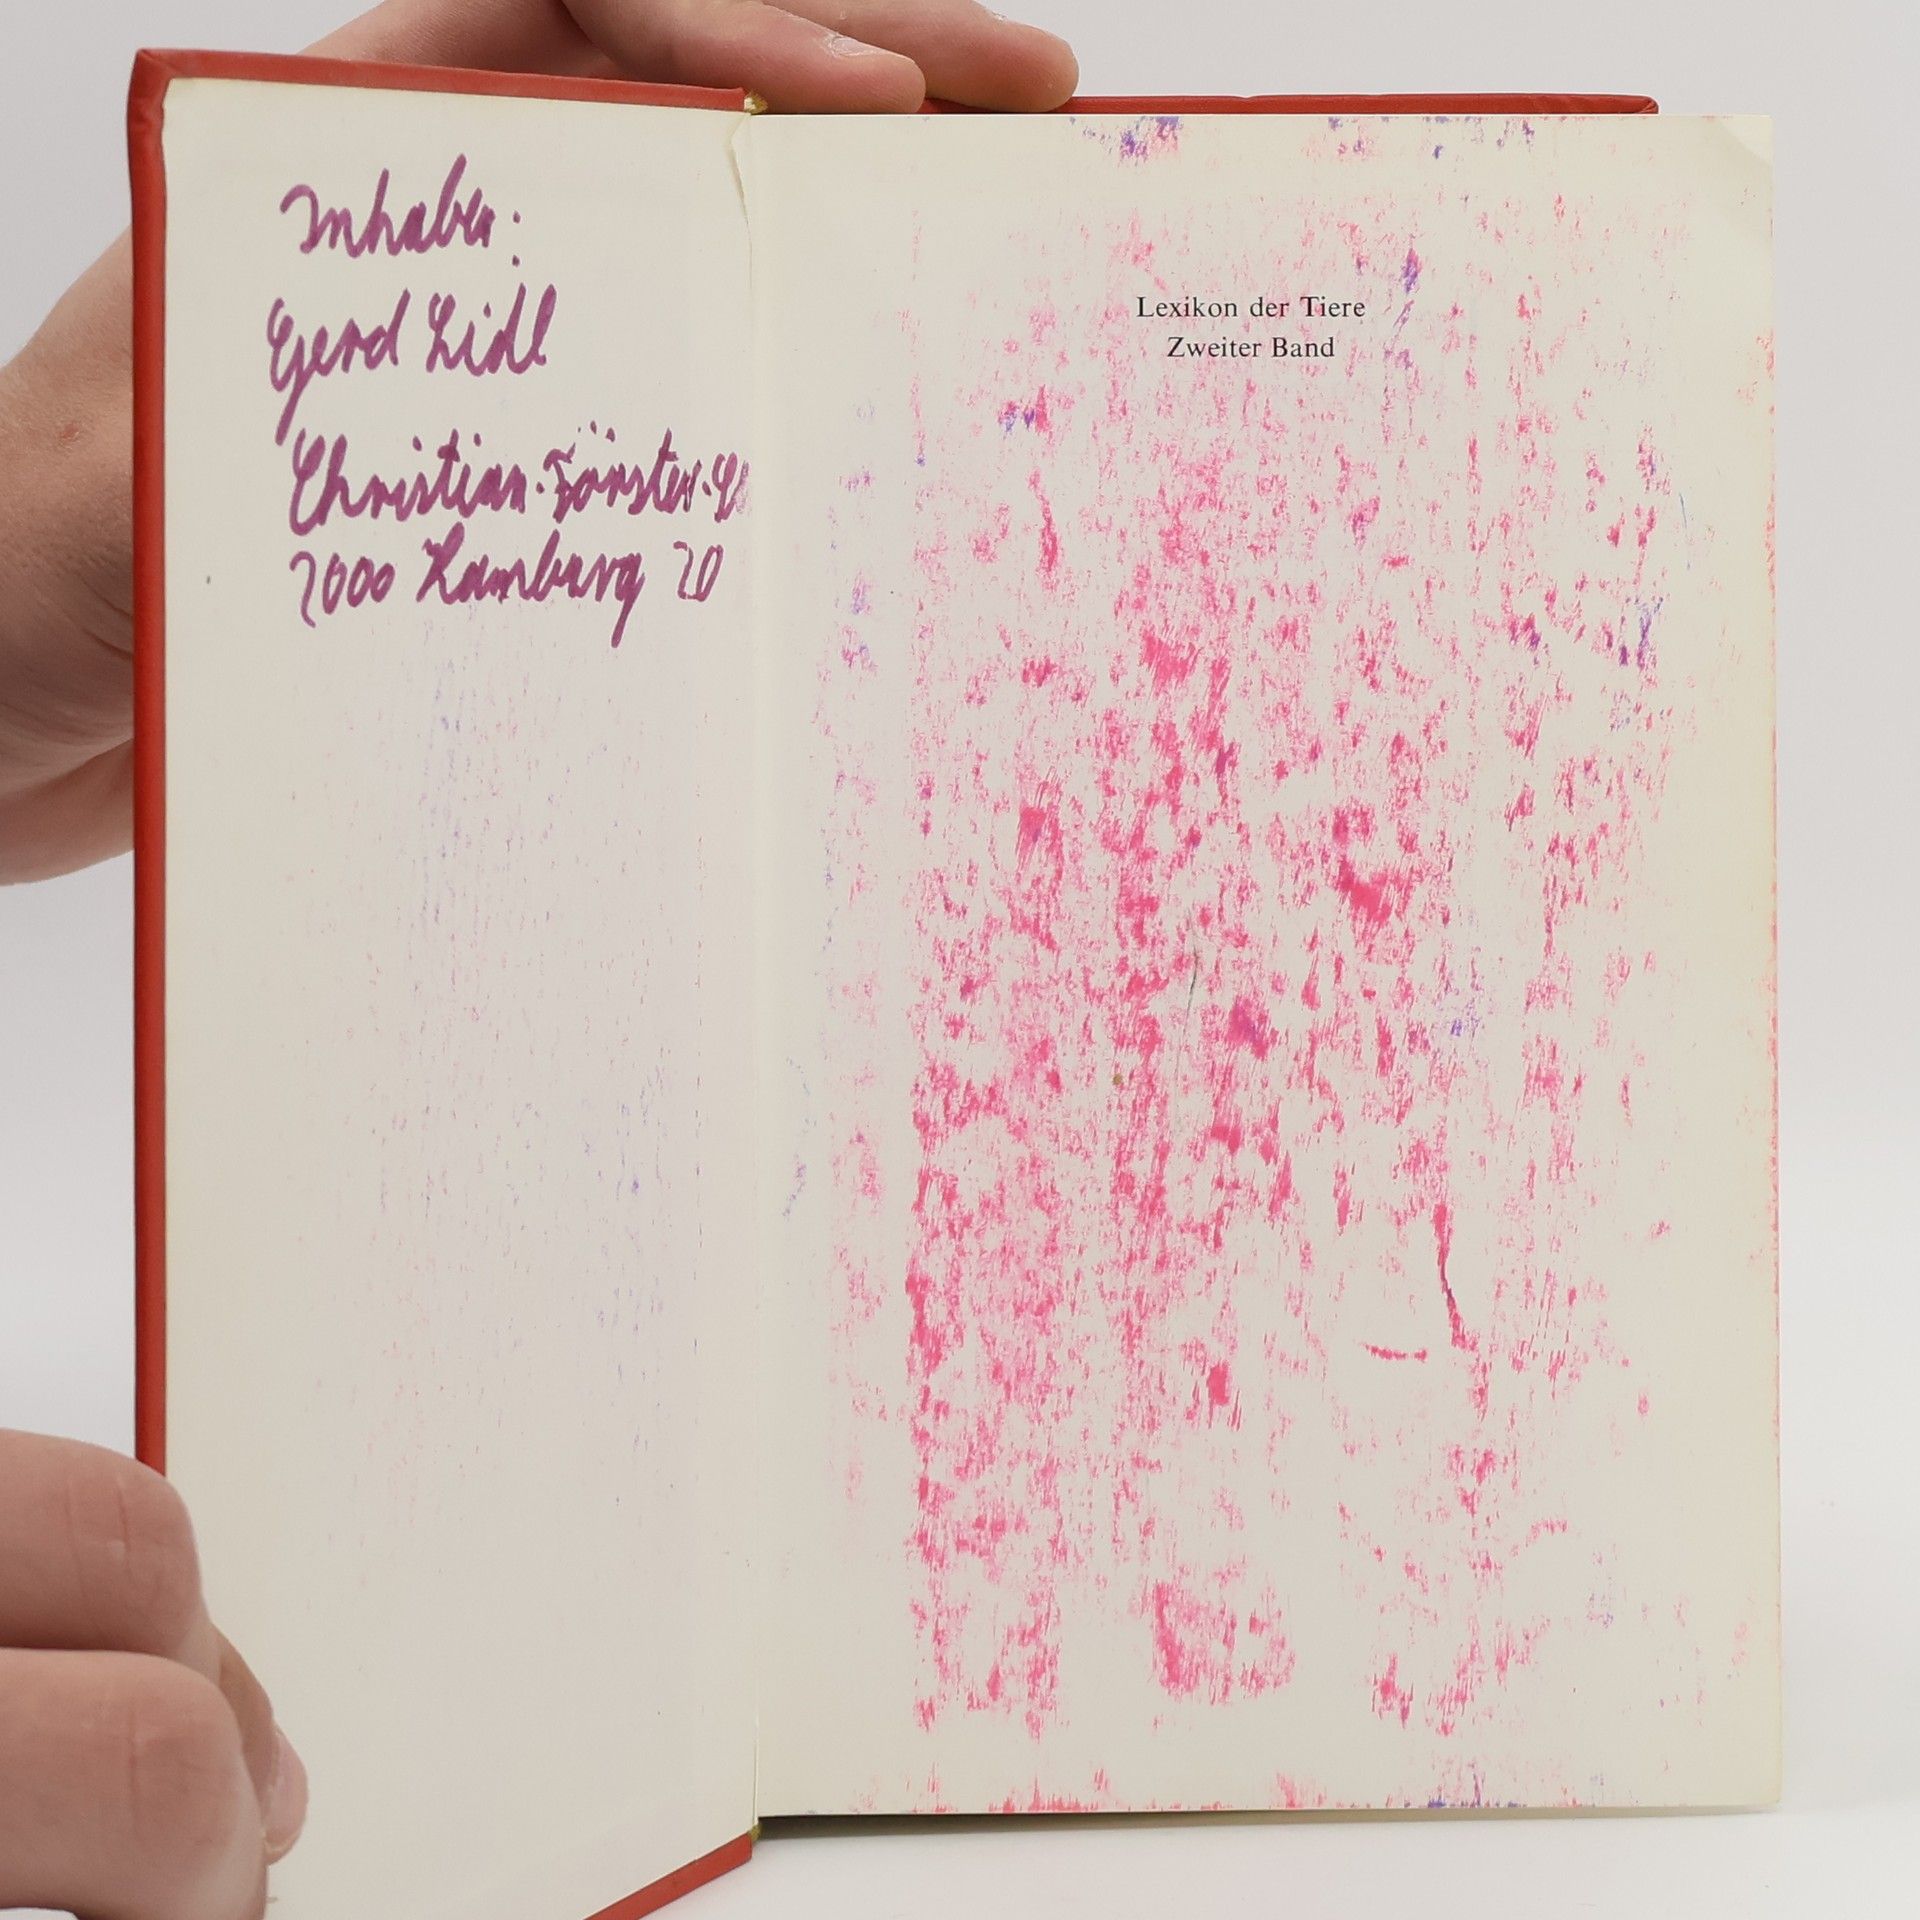 Inhaber:
Gerd Lidl
Christian-Förster-
2000 Hamburg 20
Lexikon der Tiere
Zweiter Band